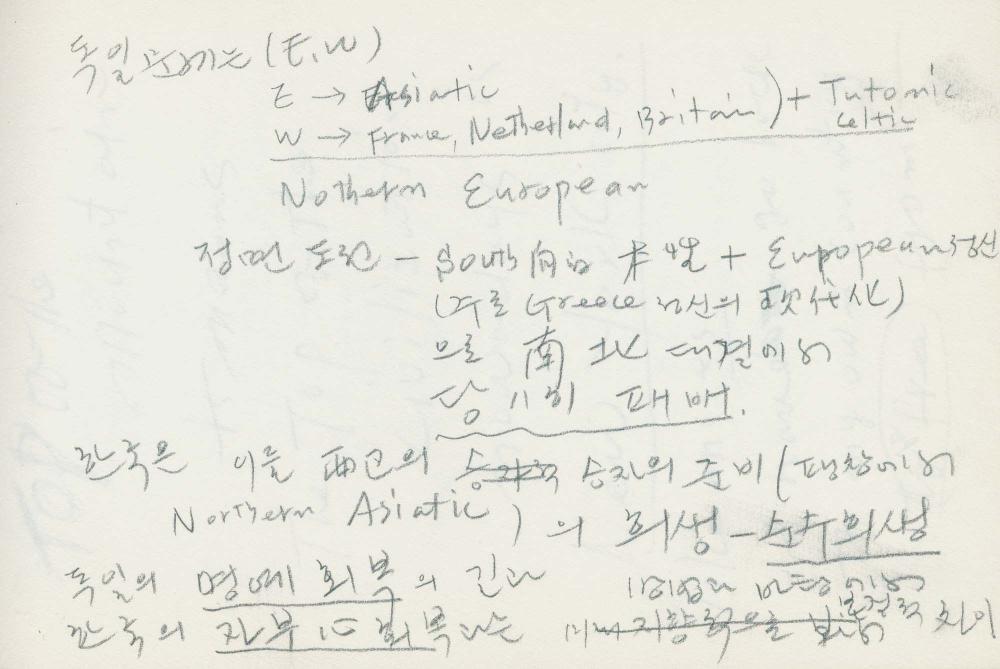 독일문제는 (E, W)
E → Asiatic
W → France, Netherland, Britain) + Tutonic
Celtic
Nothern European
정면도전 - South 向的 本性 + Eupopean 정신
(주로 Greece 정신의 現代化)
으로 南北 대결에서
당당히 패배.
한국은 이들 両고의 승자의 준비 (팽창에서
Northern Asiatic) 의 희생 - 순수희생
독일의 명예회복의 길과
한국의 자부心 회복과는 본질적 차이